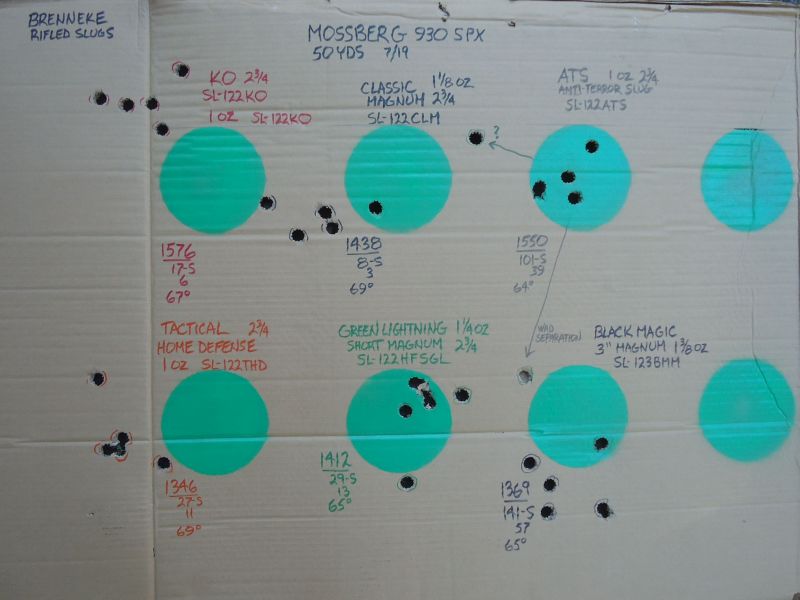 BRENNEKE
RIFLED SLUGS
MOSSBERG 930 SPX
50 YDS 7/19
KO 2 3/4
SL-122KO
1 OZ SL-122KO
CLASSIC 1 1/8 OZ
MAGNUM 2 3/4
SL-122CLM
ATS 1 OZ 2 3/4
ANTI-TERROR SLUG
SL-122ATS
?
1576
17-S
6
67°
1438
8-S
3
69°
1550
101-S
39
64°
TACTICAL 2 3/4
HOME DEFENSE
1 OZ SL-122THD
GREEN LIGHTNING 1 1/4 OZ
SHORT MAGNUM 2 3/4
SL-122HFSGL
WAD
SEPARATION
BLACK MAGIC
3" MAGNUM 1 3/8 OZ
SL-123BMM
1346
27-S
11
69°
1412
29-S
13
65°
1369
141-S
57
65°